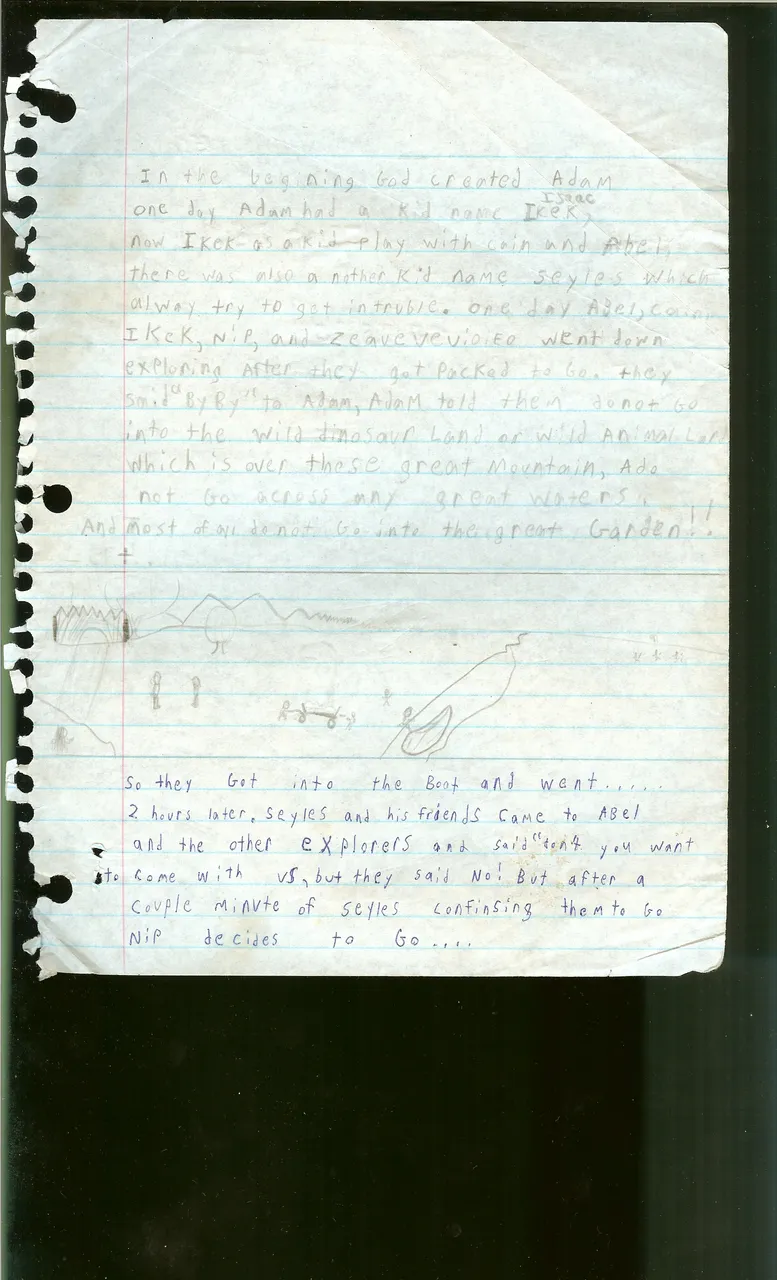 In the begining God created Adam
Isaac
one day Adam had a kid name IKeK,
now IKeK as a kid play with cain and Abel,
there was also a nother kid name seyles which
alway try to get intruble. one day Abel, cain,
IKeK, NiP, and went down
exploring After they got Packed to Go. they
"By By" to Adam, Adam told them do not Go
into the wild dinosaur Land or wild Animal Lan
which is over these great Mountain, Ado
not Go across any great waters.
And most of all do not Go into the great Garden!!
So they Got into the Boat and went.....
2 hours later. seyles and his friends came to ABel
and the other explorers and said "don't you want
to come with us, but they said No! But after a
couple minute of seyles confinsing them to Go
NiP decides to Go....